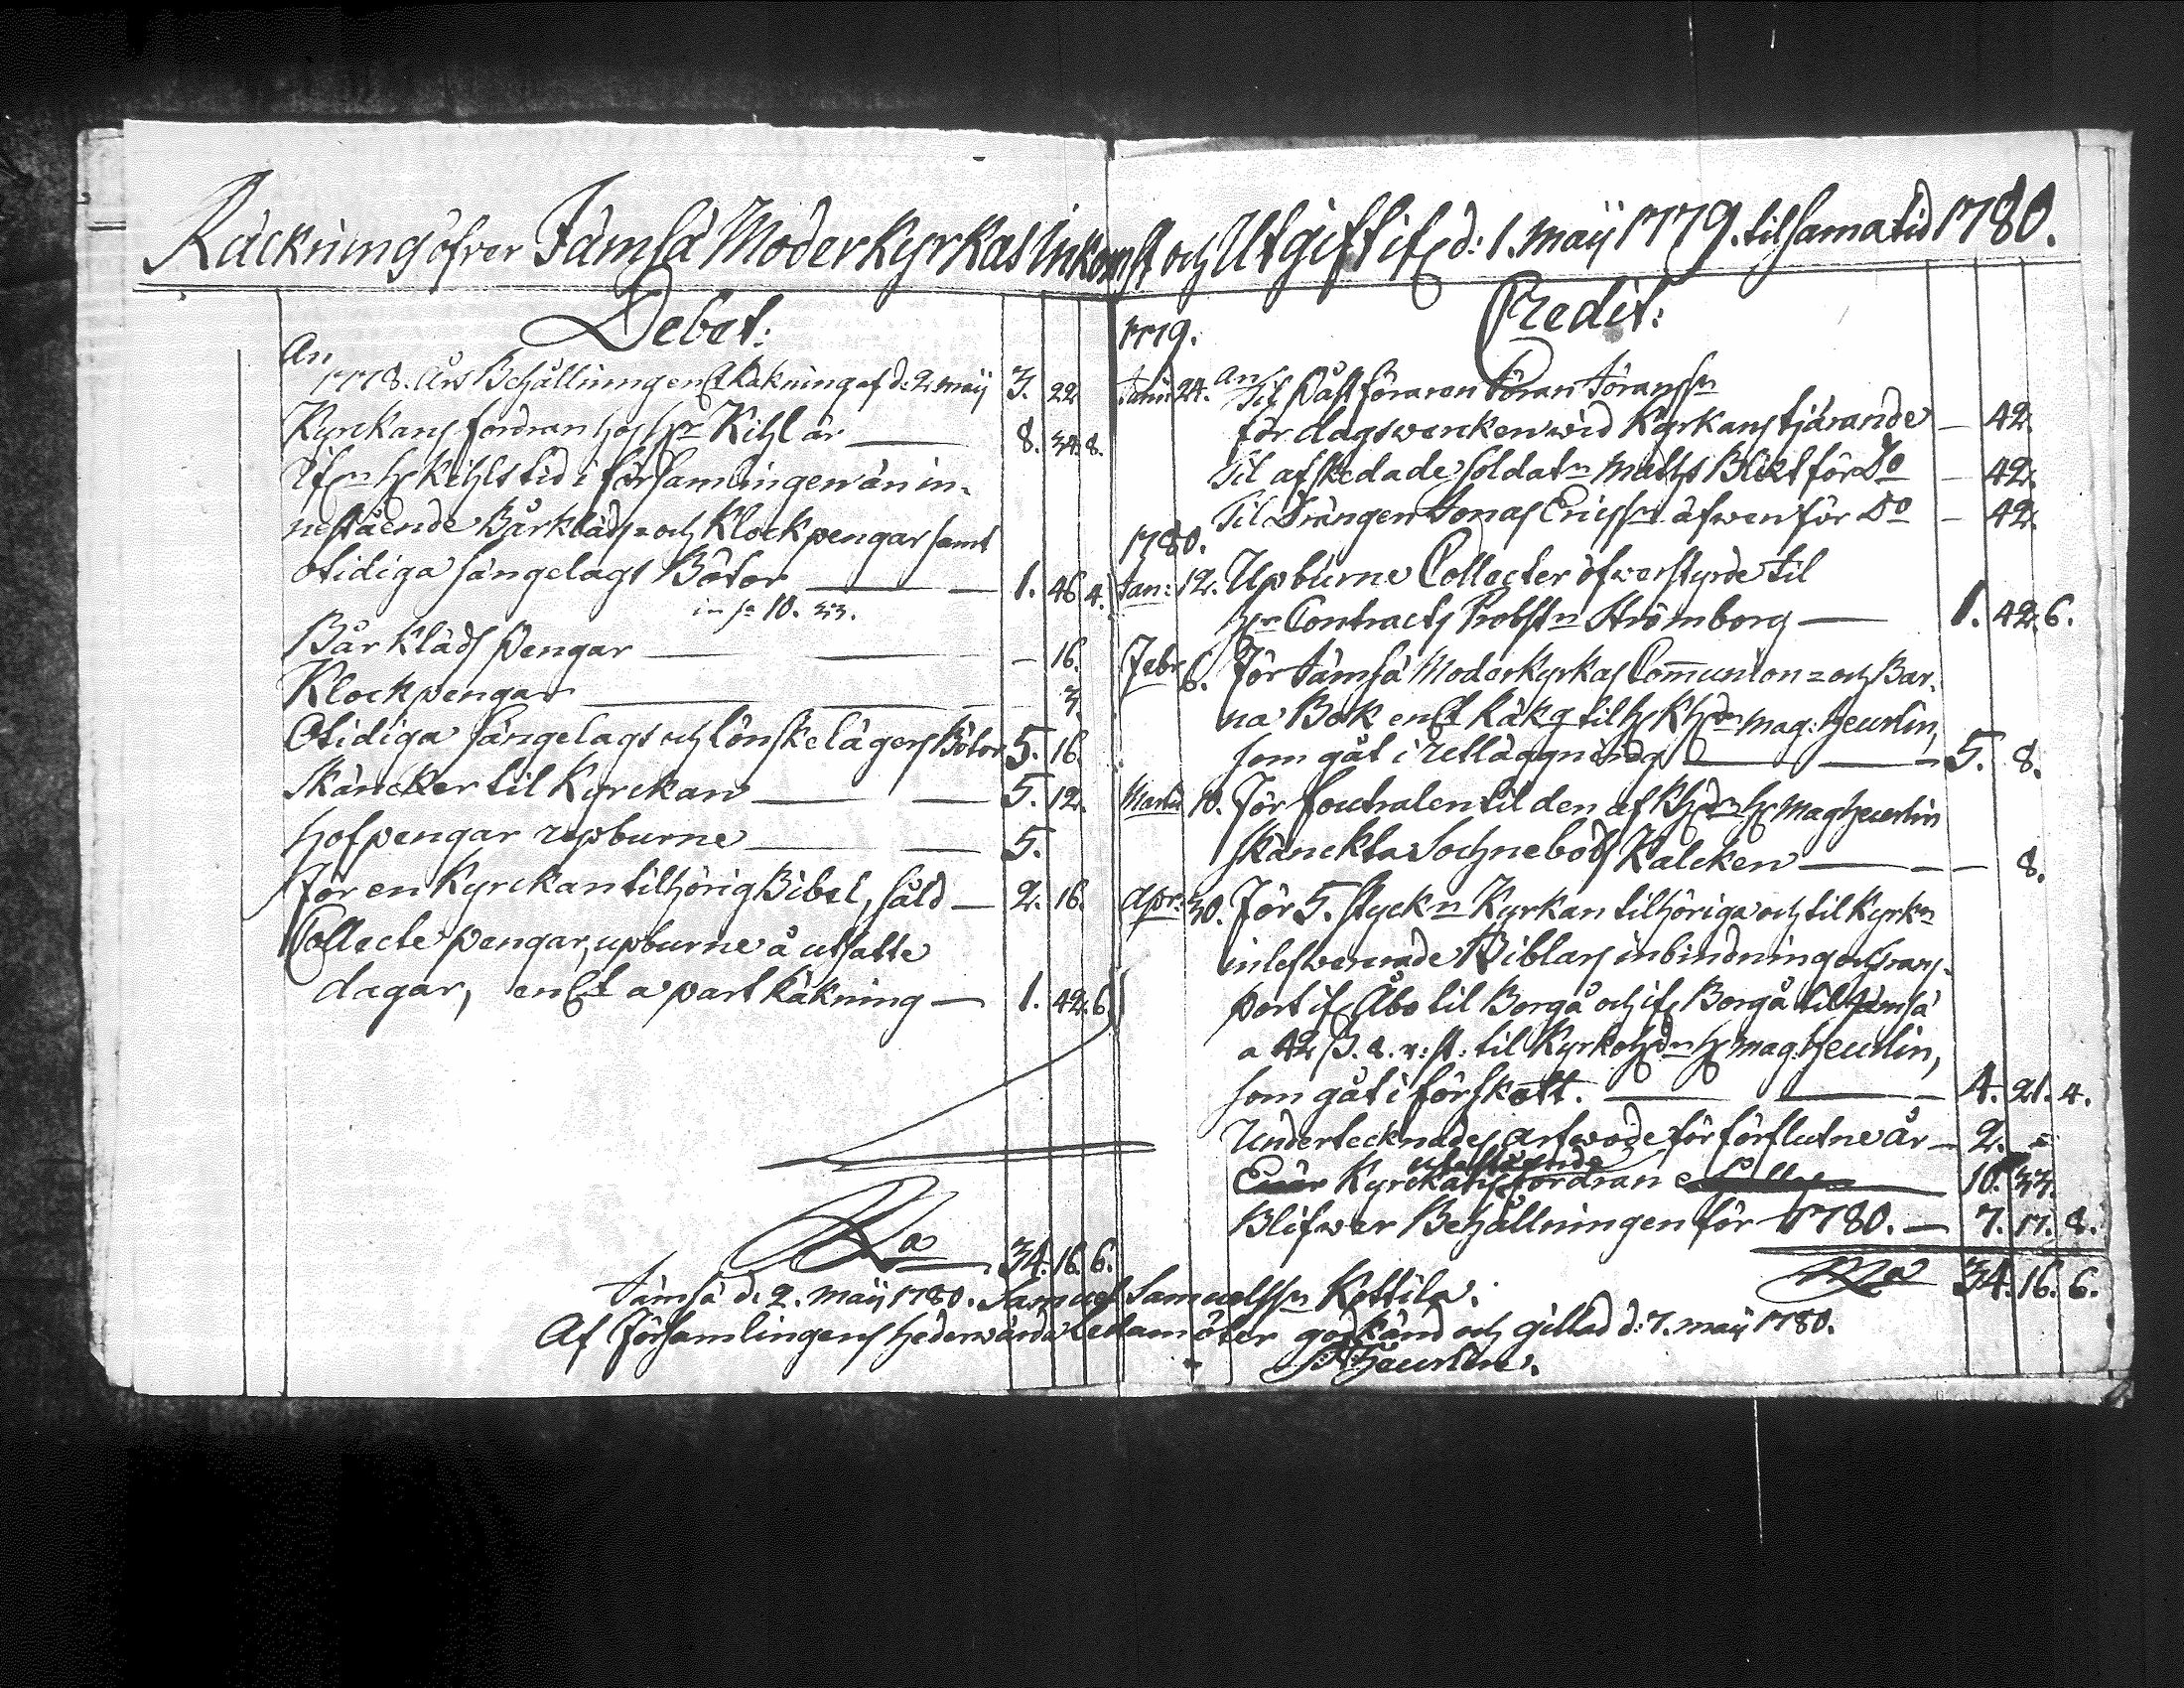 Räckning öfver Jämsä Moderkyrkas Inkomst och Utgift if: d: 1. Maij 1779. til sama tid 1780.
Debet:
An
1778. Års Behållning enl. Räkning af d. 2 Maij 3. 22
Kyrckans fordran hos Hr Kihl är 8. 34. 8.
Ifrn Hr Kihls tid i församlingen än in-
nestående Bårkläds- och Klockpengar samt
otidiga sängelags Böter 1. 46 4.
in sa 10. 33.
Bår Kläds Pengar 16.
Klockpengar 3
Otidiga sängelags och lönskelägers Böter 5. 16.
Skäncker til Kyrckan 5. 12.
Hofpengar upburne 5.
För en Kyrckan tilhörig Bibel, såld 2. 16.
Collecte pengar, upburne å utsatte
dagar, enl. apart Räkning 1. 42. 6.
Sa 34. 16. 6.
Credit:
1779.
24. An
Til Påstföraren Jöran Jöransson
för dagswercken wid Kyrkans tjärande 42.
Til afskedade soldatn Matts Blickt för Do 42.
Til Drängen Jonas Ericsson äfwen för Do 42.
1780.
Jan: 12. Upburne Collecter öfwerstyrde til
Hr Contracts Probstn Strömborg 1. 42. 6.
Febr 6. För Jämsä Moderkyrkas Communion- och Bar-
na Bok enl. Räkg til Hr Khdn Mag: Heurlin,
som gåt i utläggning 5. 8.
Martii 10. För foutralen til den af Khdn Hr Mag Heurlin
skänckta Sochnebåds Kalcken 8.
Apr: 30. För 5. styckn Kyrkan tilhöriga och til Kyrkn
inlefwererade Biblars inbindning och trans-
port if. Åbo til Borgå och if. Borgå til Jämsä
a 42 s. 8. r: st: til Kyrkohdn Hr Mag: Heurlin,
som gåt i förskott. 4. 21. 4.
Undertecknades arfwode för förflutne år 2.
Kyrckans utestående fordran 10. 33.
Blifwer Behållningen för 1780. 7. 17. 8.
Sa 34. 16. 6.
Jämsä d. 2. Maij 1780. Samuel Samuelsson Kettila.
Af Församlingens hederwärda Ledamöter godkänd och gillad d: 7. Maij 1780.
Heurlin.